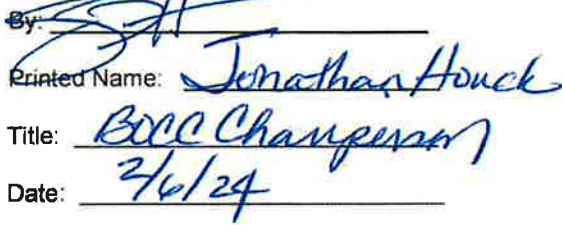 By:
Printed Name: Jonathan Houck
Title: BOCC Chairperson
Date: 2/6/24